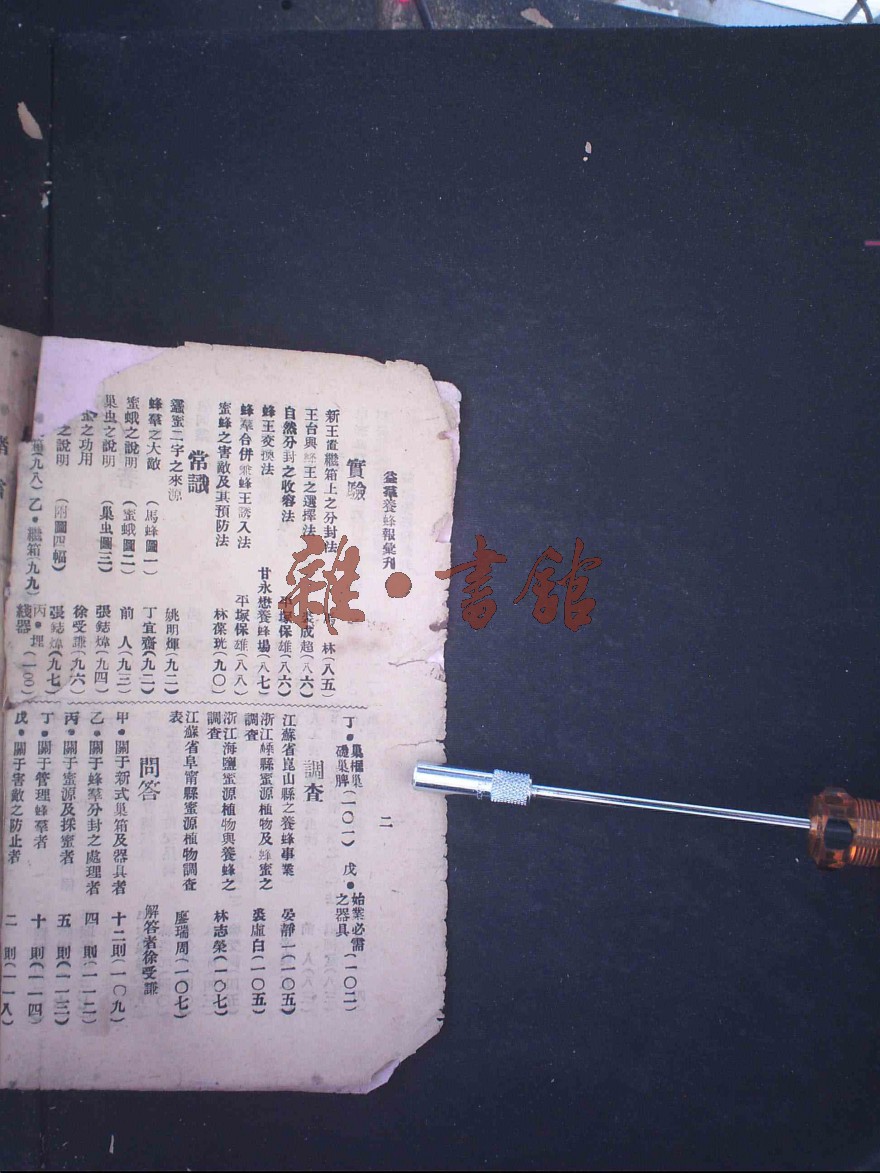 益羣養蜂報彙刊
實驗
新王置繼箱上之分封法 林(八五)
王台與蜂王之選擇法 裘成超(八六)
自然分封之收容法 平塚保雄(八六)
蜂王交換法 甘永懋養蜂場(八七)
蜂羣合併兼蜂王誘入法 平塚保雄(八八)
蜜蜂之害敵及其預防法 林葆珖(九〇)
常識
蠶蜜二字之來源 姚明煇(九二)
蜂羣之大敵 (馬蜂圖一) 丁宜齋(九二)
蜜蛾之說明 (蜜蛾圖二) 前 人(九三)
巢虫之說明 (巢虫圖三) 張鋕煒(九四)
之功用 徐受謙(九六)
之說明 (附圖四幅) 張鋕煒(九七)
九八) 乙•繼箱(九九) 丙•埋線器(一〇〇)
二
丁•巢框巢礎巢脾(一〇一) 戊•始業必需之器具(一〇二)
調查
江蘇省崑山縣之養蜂事業 晏靜一(一〇五)
浙江嵊縣蜜源植物及蜂蜜之調查 裘虛白(一〇五)
浙江海鹽蜜源植物與養蜂之調查 林志榮(一〇七)
江蘇省阜甯縣蜜源植物調查表 廖瑞周(一〇七)
問答 解答者徐受謙
甲•關于新式巢箱及器具者 十二則(一〇九)
乙•關于蜂羣分封之處理者 四 則(一一二)
丙•關于蜜源及採蜜者 五 則(一一三)
丁•關于管理蜂羣者 十 則(一一四)
戊•關于害敵之防止者 二 則(一一八)
雜•書館